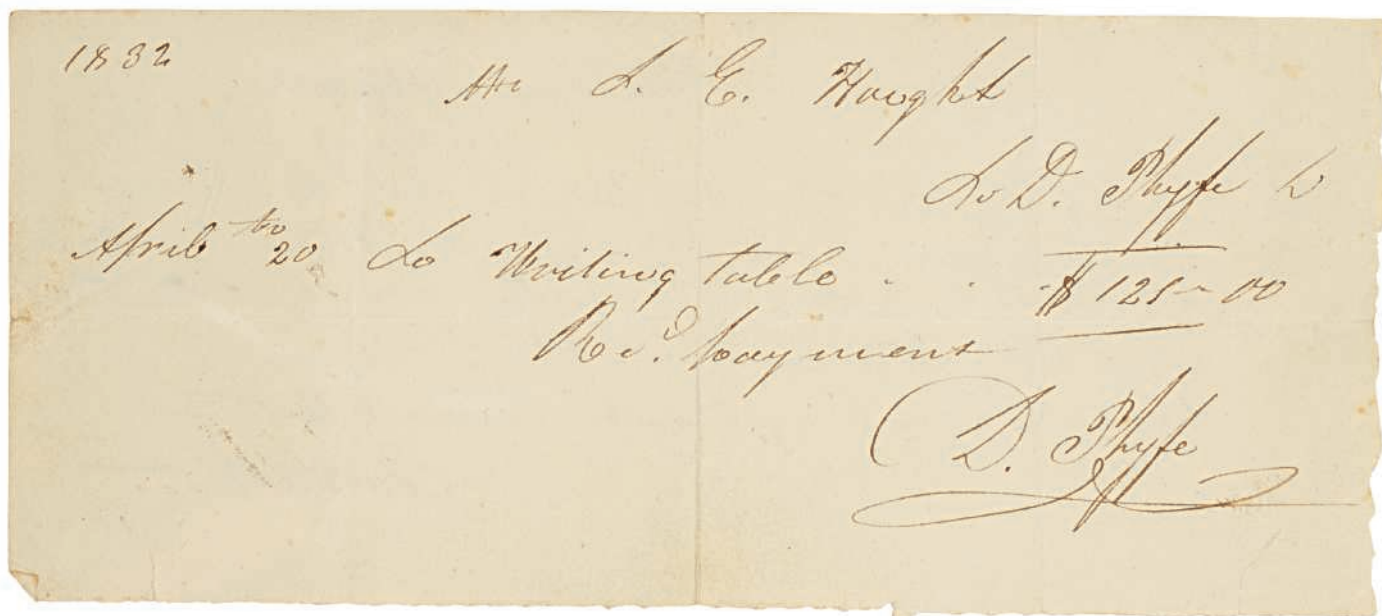 1832
Mr L. E. Hought
To D. Phyfe Dr
April the 20 To Writing table . . $125-00
Recd. payment
D. Phyfe